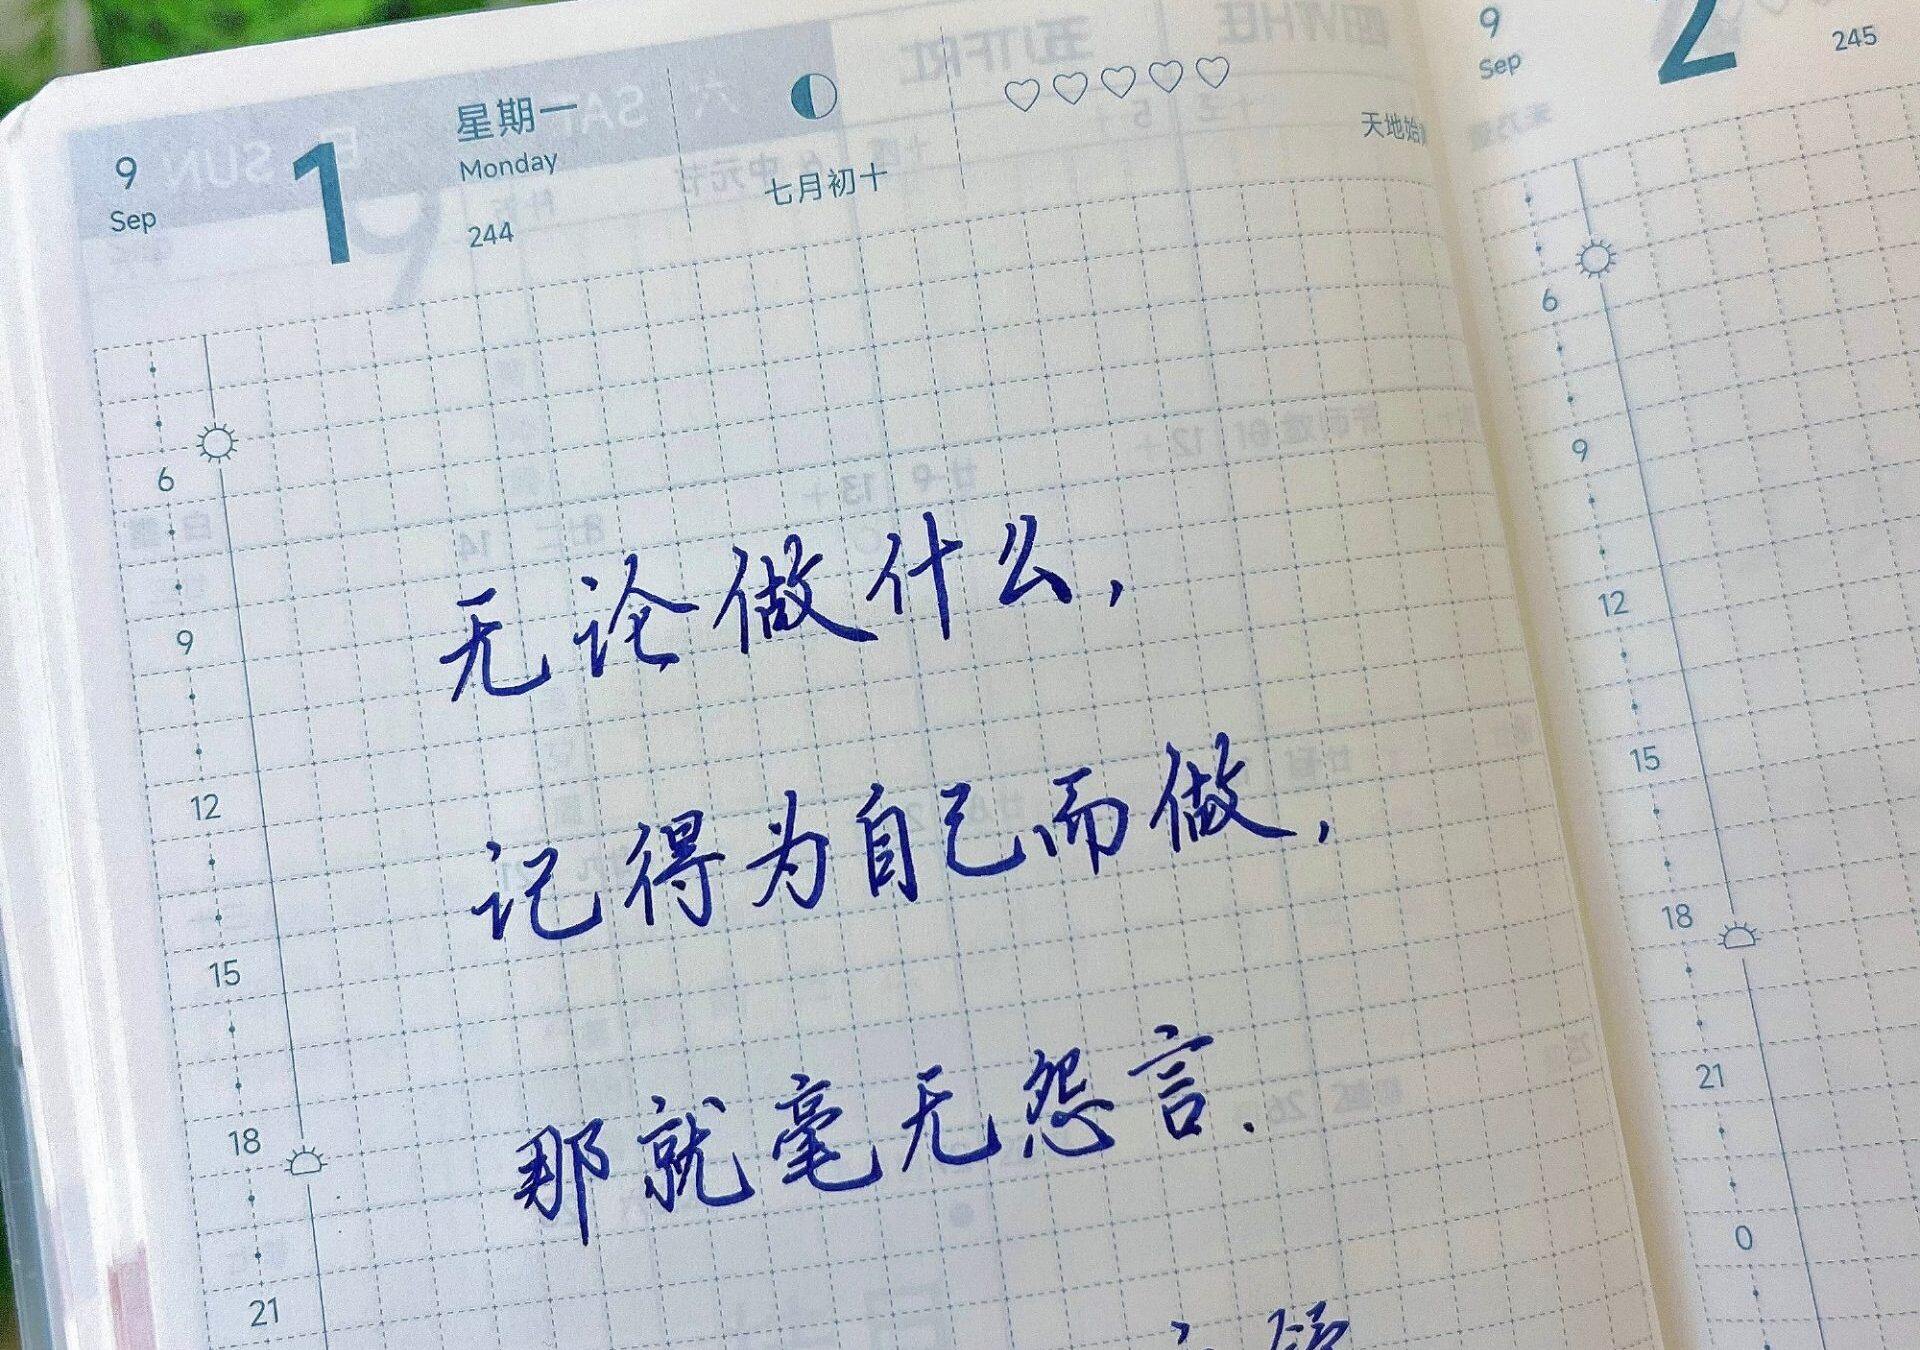 9
Sep
1
星期一
Monday
244
七月初十
天地始
6
9
12
15
18
21
无论做什么,
记得为自己而做,
那就毫无怨言.
9
Sep
2
245
6
9
12
15
18
21
0